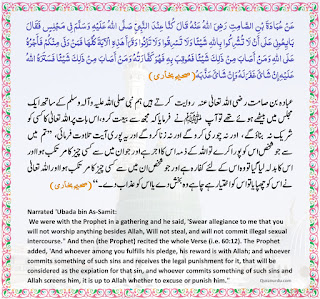 عَنْ عُبَادَةَ بْنِ الصَّامِتِ رَضِيَ اللهُ عَنْهُ قَالَ كُنَّا عِنْدَ النَّبِيِّ صَلَّى اللهُ عَلَيْهِ وَسَلَّمَ فِي مَجْلِسٍ فَقَالَ
بَايِعُونِي عَلَى أَنْ لَا تُشْرِكُوا بِاللهِ شَيْئًا وَلَا تَسْرِقُوا وَلَا تَزْنُوا وَقَرَأَ هَذِهِ الْآيَةَ كُلَّهَا فَمَنْ وَفَى مِنْكُمْ فَأَجْرُهُ
عَلَى اللهِ وَمَنْ أَصَابَ مِنْ ذَلِكَ شَيْئًا فَعُوقِبَ بِهِ فَهُوَ كَفَّارَتُهُ وَمَنْ أَصَابَ مِنْ ذَلِكَ شَيْئًا فَسَتَرَهُ اللهُ
عَلَيْهِ إِنْ شَاءَ غَفَرَ لَهُ وَإِنْ شَاءَ عَذَّبَهُ (صحیح بخاری)
عبادہ بن صامت رضی اللہ تعالی عنہ روایت کرتے ہیں ہم نبی صلی اللہ علیہ وآلہ وسلم کے ساتھ ایک
مجلس میں بیٹھے ہوئے تھے تو آپ ﷺ نے فرمایا کہ مجھ سے بیعت کرو، اس بات پر کہ اللہ تعالی کا کسی کو
شریک نہ بناؤ گے، اور نہ چوری کرو گے اور نہ زنا کرو گے اور یہ پوری آیت تلاوت فرمائی، "تم میں
سے جو شخص اس کو پورا کرے تو اللہ کے ذمہ اس کا اجر ہے اور جو ان میں سے کسی چیز کا مرتکب ہوا اور
اس کا بدلہ لیا گیا تو وہ اس کے لئے کفارہ ہے اور جو شخص ان میں سے کسی چیز کا مرتکب ہوا اور اللہ تعالی
نے اس کو چھپایا تو اس کو اختیار ہے چاہے تو بخش دے یا اس کو عذاب دے۔" (صحیح بخاری)
Narrated 'Ubada bin As-Samit:
We were with the Prophet in a gathering and he said, 'Swear allegiance to me that you
will not worship anything besides Allah, Will not steal, and will not commit illegal sexual
intercourse." And then (the Prophet) recited the whole Verse (i.e. 60:12). The Prophet
added, 'And whoever among you fulfills his pledge, his reward is with Allah; and whoever
commits something of such sins and receives the legal punishment for it, that will be
considered as the expiation for that sin, and whoever commits something of such sins and
Allah screens him, it is up to Allah whether to excuse or punish him."